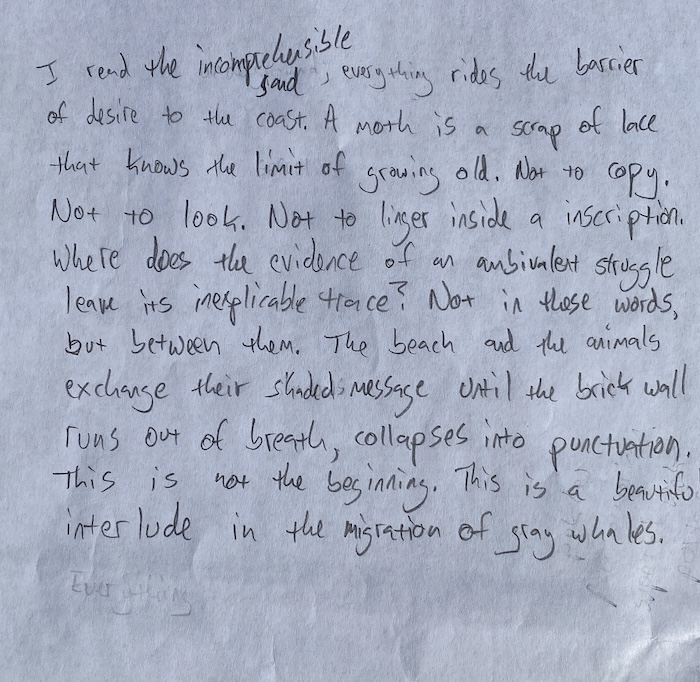 I read the incomprehensible
sand, everything rides the barrier
of desire to the coast. A moth is a scrap of lace
that knows the limit of growing old. Not to copy.
Not to look. Not to linger inside a inscription.
Where does the evidence of an ambivalent struggle
leave its inexplicable trace? Not in these words,
but between them. The beach and the animals
exchange their shaded message until the brick wall
runs out of breath, collapses into punctuation.
This is not the beginning. This is a beautifu
interlude in the migration of gray whales.
Everything